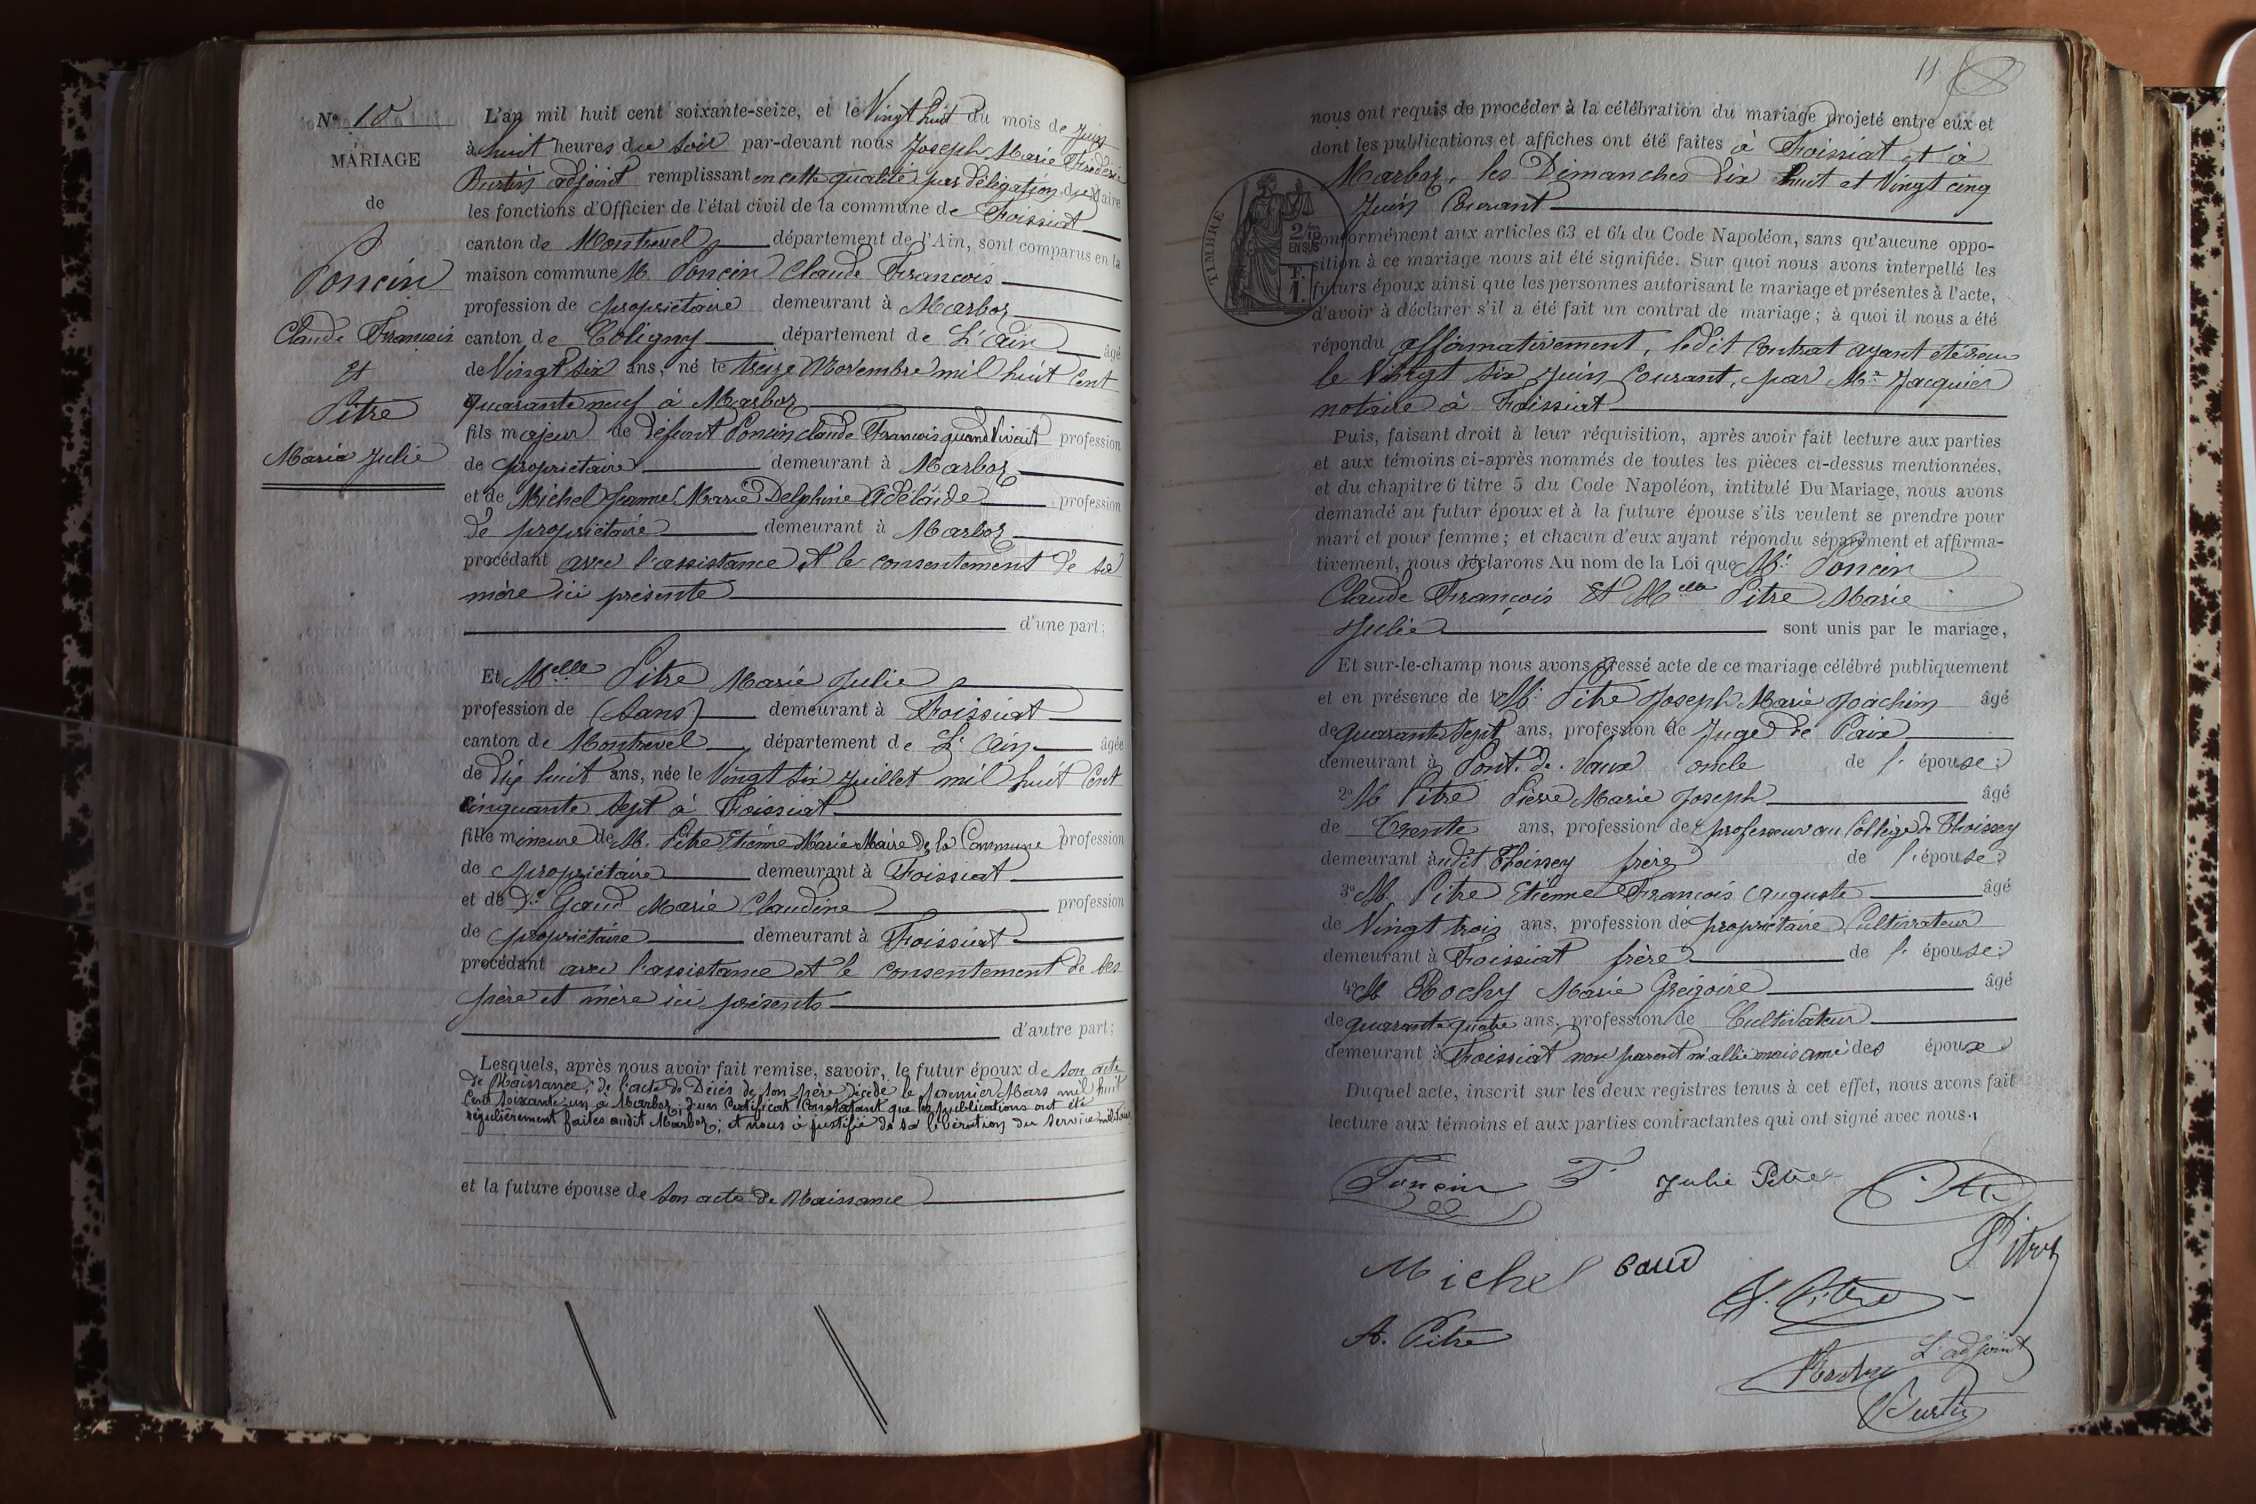 N° 10
MARIAGE
de
Poncin
Claude François
Et
Pitre
Marie Julie
L'an mil huit cent soixante-seize, et le Vingt huit du mois de Juin
à huit heures du soir par-devant nous Joseph Marie Frédéric
Burtin adjoint remplissant en cette qualité par délégation du Maire
les fonctions d'Officier de l'état civil de la commune de Foissiat
canton de Montrevel département de l'Ain, sont comparus en la
maison commune M. Poncin Claude François
profession de propriétaire demeurant à Marboz
canton de Coligny département de L'Ain âgé
de Vingt six ans, né le treize Novembre mil huit Cent
quarante neuf à Marboz
fils majeur de défunt Poncin Claude François quand Vivait profession
de propriétaire demeurant à Marboz
et de Michel Jeanne Marie Delphine Adélaïde profession
de propriétaire demeurant à Marboz
procédant avec l'assistance et le consentement de sa
mère ici présente
d'une part;
Et Melle Pitre Marie Julie
profession de (Sans) demeurant à Foissiat
canton de Montrevel département de L'Ain âgée
de dix huit ans, née le Vingt six Juillet mil huit Cent
Cinquante sept à Foissiat
fille mineure de M. Pitre Etienne Marie Maire de la Commune profession
de propriétaire demeurant à Foissiat
et de de Gaud Marie Claudine profession
de propriétaire demeurant à Foissiat
procédant avec l'assistance et le consentement de ses
père et mère ici présents
d'autre part;
Lesquels, après nous avoir fait remise, savoir, le futur époux de son acte
de Naissance; de l'acte de Décés de son père décédé le premier Mars mil huit
Cent soixante un à Marboz; d'un Certificat Constatant que les publications ont été
régulièrement faites audit Marboz; et nous à justifié de sa libération du service militaire
et la future épouse de son acte de Naissance
11
nous ont requis de procéder à la célébration du mariage projeté entre eux et
dont les publications et affiches ont été faites à Foissiat et à
Marboz, les Dimanches dix huit et Vingt cinq
Juin Courant
TIMBRE
2/10 EN SUS
F. 1.
conformément aux articles 63 et 64 du Code Napoléon, sans qu'aucune oppo-
sition à ce mariage nous ait été signifiée. Sur quoi nous avons interpellé les
futurs époux ainsi que les personnes autorisant le mariage et présentes à l'acte,
d'avoir à déclarer s'il a été fait un contrat de mariage; à quoi il nous a été
répondu affirmativement, ledit Contrat ayant été reçu
le Vingt six Juin Courant, par Me Jacquier
notaire à Foissiat
Puis, faisant droit à leur réquisition, après avoir fait lecture aux parties
et aux témoins ci-après nommés de toutes les pièces ci-dessus mentionnées,
et du chapitre 6 titre 5 du Code Napoléon, intitulé Du Mariage, nous avons
demandé au futur époux et à la future épouse s'ils veulent se prendre pour
mari et pour femme; et chacun d'eux ayant répondu séparément et affirma-
tivement, nous déclarons Au nom de la Loi que Mr. Poncin
Claude François Et Melle Pitre Marie
Julie sont unis par le mariage,
Et sur-le-champ nous avons dressé acte de ce mariage célébré publiquement
et en présence de 1° M. Pitre Joseph Marie Joachim âgé
de quarante sept ans, profession de Juge de Paix
demeurant à Pont. de. Vaux oncle de l' épouse;
2° M Pitre Pierre Marie Joseph âgé
de Trente ans, profession de professeur au Collège de Thoissey
demeurant audit Thoissey frère de l' épouse;
3° M. Pitre Etienne François Auguste âgé
de Vingt trois ans, profession de propriétaire Cultivateur
demeurant à Foissiat frère de l' épouse;
4° M Rochy Marie Grégoire âgé
de quarante quatre ans, profession de Cultivateur
demeurant à Foissiat non parent ni allié mais ami des époux
Duquel acte, inscrit sur les deux registres tenus à cet effet, nous avons fait
lecture aux témoins et aux parties contractantes qui ont signé avec nous.
Poncin F. Julie Pitre
Pitre
Michel Gaud
Pitre
A. Pitre
L'adjoint
Burtin